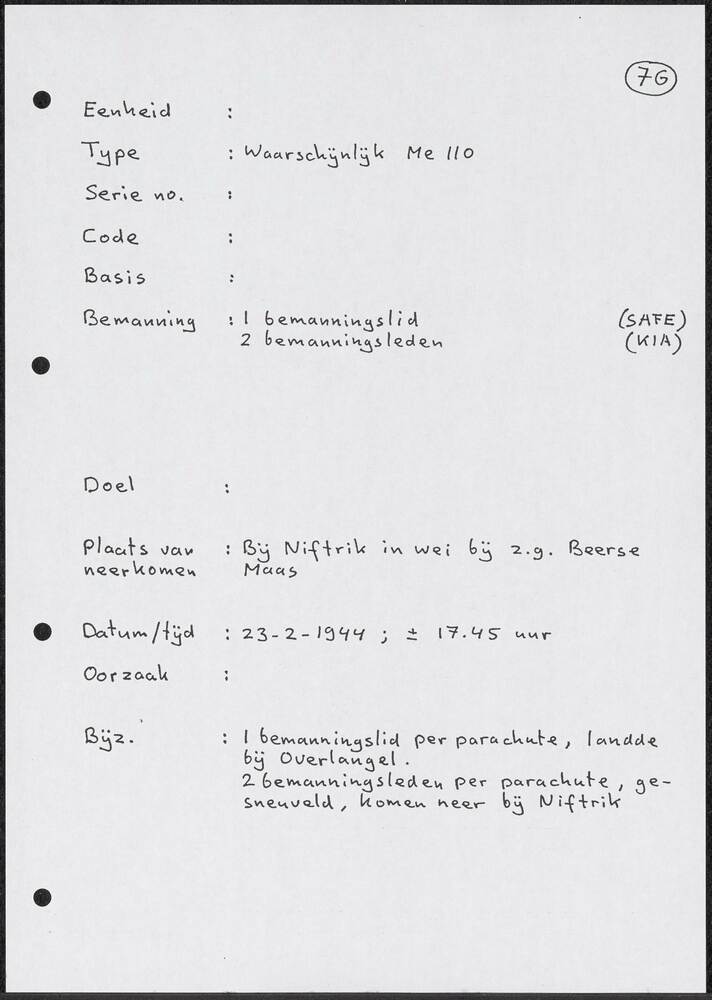 7G
Eenheid :
Type : Waarschijnlijk Me 110
Serie no. :
Code :
Basis :
Bemanning : 1 bemanningslid (SAFE)
2 bemanningsleden (KIA)
Doel :
Plaats van : Bij Niftrik in wei bij z.g. Beerse
neerkomen Maas
Datum/tijd : 23-2-1944 ; ± 17.45 uur
Oorzaak :
Bijz. : 1 bemanningslid per parachute, landde
bij Overlangel.
2 bemanningsleden per parachute, ge-
sneuveld, komen neer bij Niftrik